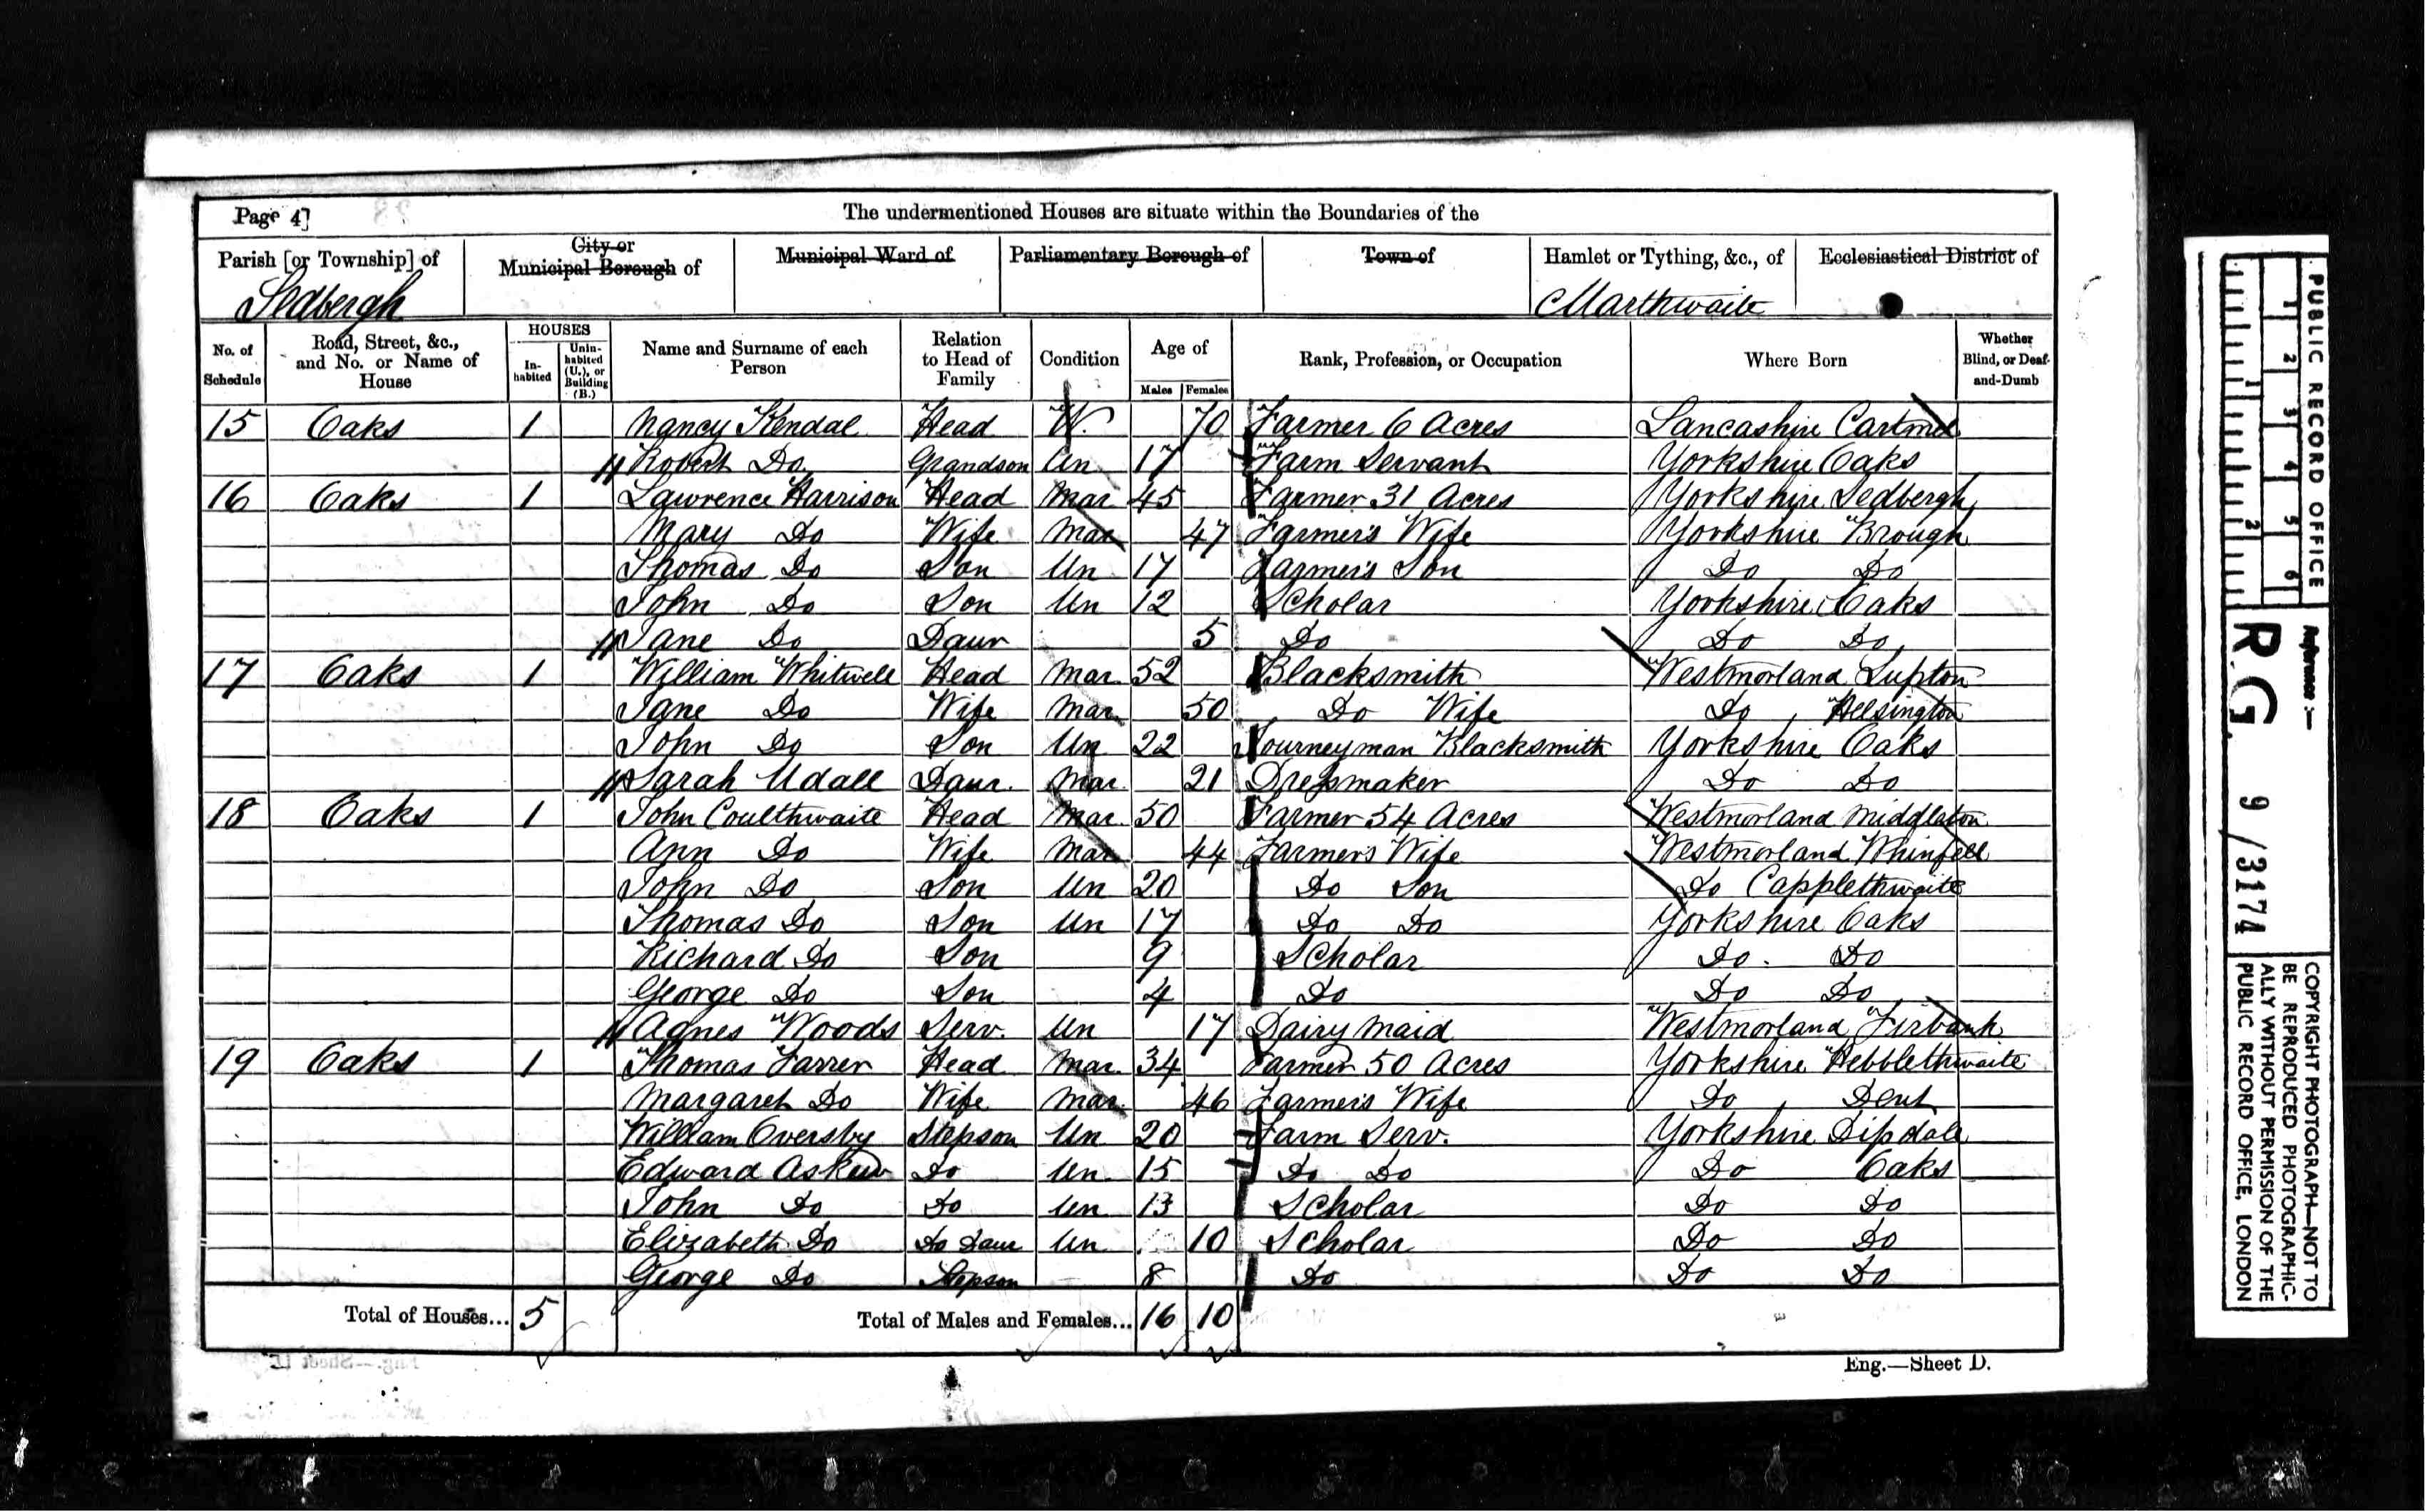 Page 4]
The undermentioned Houses are situate within the Boundaries of the
Parish [or Township] of Sedbergh
City or Municipal Borough of
Municipal Ward of
Parliamentary Borough of
Town of
Hamlet or Tything, &c., of Marthwaite
Ecclesiastical District of
No. of Schedule
Road, Street, &c., and No. or Name of House
HOUSES
In-habited
Unin-habited (U.), or Building (B.)
Name and Surname of each Person
Relation to Head of Family
Condition
Age of
Males
Females
Rank, Profession, or Occupation
Where Born
Whether Blind, or Deaf-and-Dumb
15 Oaks 1 Nancy Kendal Head W. 70 Farmer 6 Acres Lancashire Cartmel
Robert Do. Grandson Un 17 Farm Servant Yorkshire Oaks
16 Oaks 1 Lawrence Harrison Head Mar 45 Farmer 31 Acres Yorkshire Sedbergh
Mary Do Wife Mar 47 Farmer's Wife Yorkshire Brough
Thomas Do Son Un 17 Farmer's Son Do Do
John Do Son Un 12 Scholar Yorkshire Oaks
Jane Do Daur 5 Do Do Do
17 Oaks 1 William Whitwell Head Mar. 52 Blacksmith Westmorland Lupton
Jane Do Wife Mar. 50 Do Wife Do Helsington
John Do Son Un 22 Journeyman Blacksmith Yorkshire Oaks
Sarah Udall Daur. Mar. 21 Dressmaker Do Do
18 Oaks 1 John Coulthwaite Head Mar. 50 Farmer 54 Acres Westmorland Middleton
Ann Do Wife Mar 44 Farmers Wife Westmorland Whinfell
John Do Son Un 20 Do Son Do Capplethwaite
Thomas Do Son Un 17 Do Do Yorkshire Oaks
Richard Do Son 9 Scholar Do. Do
George Do Son 4 Do Do Do
Agnes Woods Serv. Un 17 Dairy Maid Westmorland Firbank
19 Oaks 1 Thomas Farrer Head Mar. 34 Farmer 50 Acres Yorkshire Hebblethwaite
Margaret Do Wife Mar. 46 Farmer's Wife Do Dent
William Oversby Stepson Un 20 Farm Serv. Yorkshire
Edward Askew Do Un. 15 Do Do Do Oaks
John Do Do Un 13 Scholar Do Do
Elizabeth Do Do Daur Un 10 Scholar Do Do
George Do Stepson 8 Do Do Do
Total of Houses... 5
Total of Males and Females... 16 10
Eng.—Sheet D.
PUBLIC RECORD OFFICE
1 2 3 4 5 6
1 2
Reference :—
R.G. 9/3174
COPYRIGHT PHOTOGRAPH—NOT TO BE REPRODUCED PHOTOGRAPHIC-
ALLY WITHOUT PERMISSION OF THE PUBLIC RECORD OFFICE, LONDON